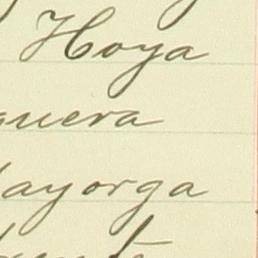 Hoya
guera
ayorga